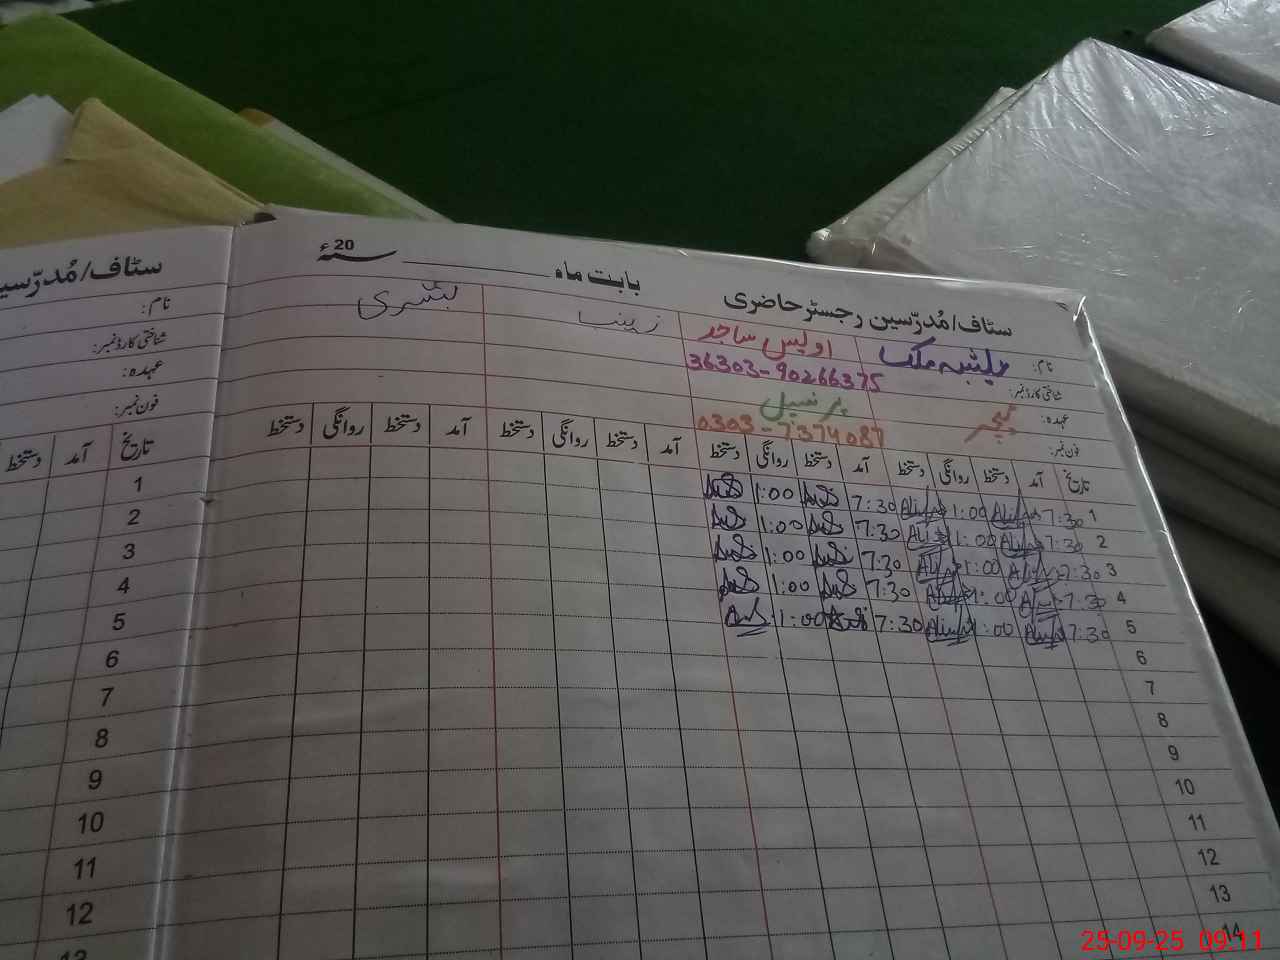 سٹاف/مُدرّسین رجسٹر حاضری بابت ماہ سنۂ 20
نام: علیشبہ ملک اویس ساجد زینب بشری
شناختی کارڈ نمبر: 36303-90266375
عہدہ: ٹیچر پرنسپل
فون نمبر: 0303-7374087
تاریخ آمد دستخط روانگی دستخط آمد دستخط روانگی دستخط آمد دستخط روانگی دستخط آمد دستخط روانگی دستخط
1 7:30 1:00 7:30 1:00
2 7:30 1:00 7:30 1:00
3 7:30 1:00 7:30 1:00
4 7:30 1:00 7:30 1:00
5 7:30 1:00 7:30 1:00
6
7
8
9
10
11
12
13
14
سٹاف/مُدرّسین
نام:
شناختی کارڈ نمبر:
عہدہ:
فون نمبر:
تاریخ آمد دستخط
1
2
3
4
5
6
7
8
9
10
11
12
13
25-09-25 09:11